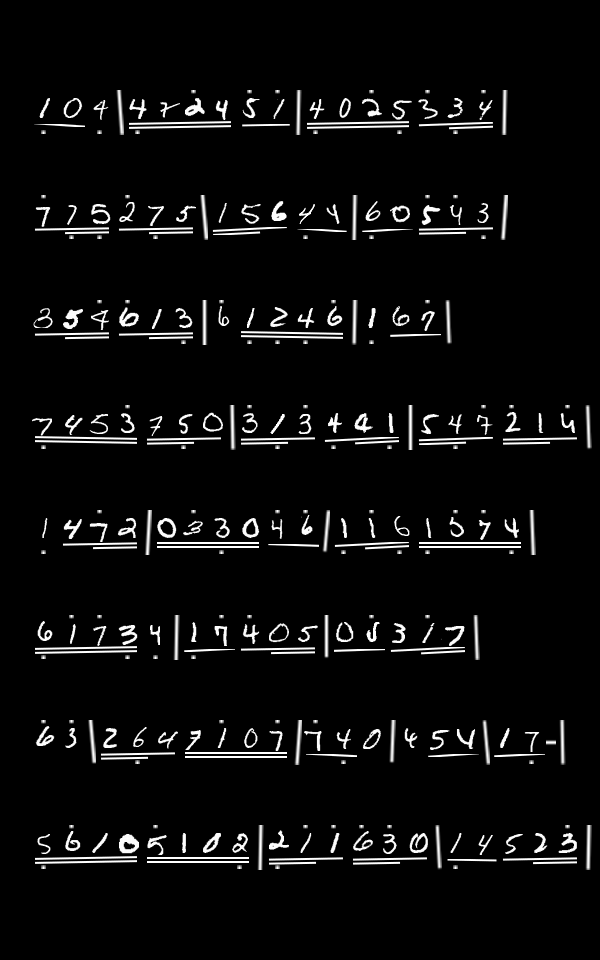 104|472451|4025334
775275|15644|60543
354613|61246|167
7453750|313441|547214
1472|033046|1161574
61734|17405|05317
63|2647107|740|454|17-|
56105102|211630|14523|